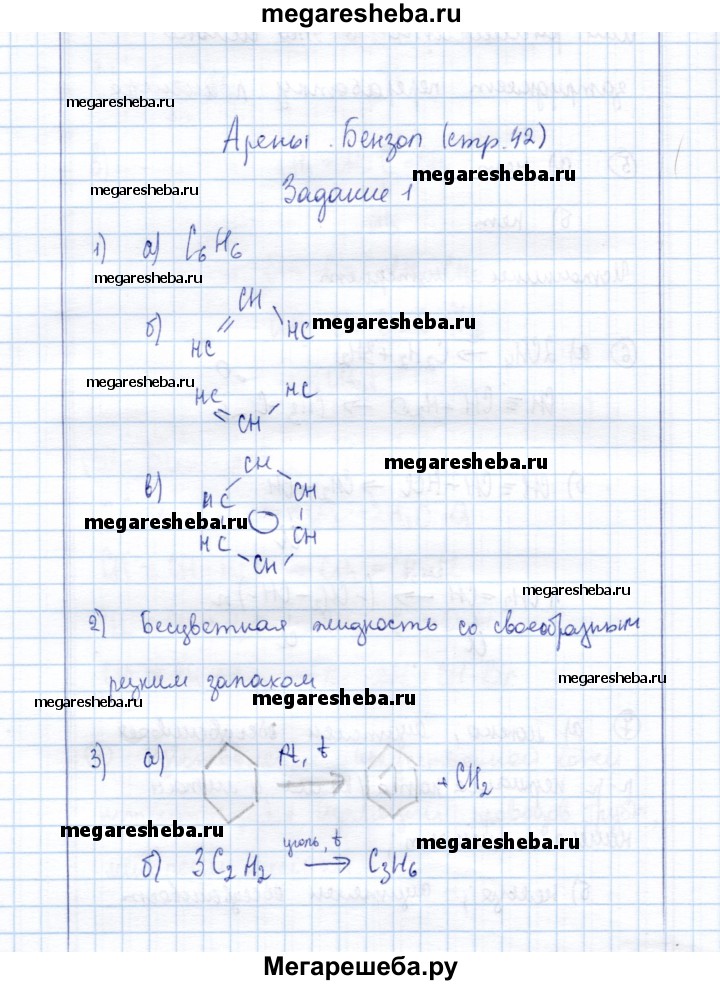 megaresheba.ru
megaresheba.ru
Арены. Бензол (стр. 42)
megaresheba.ru
megaresheba.ru
Задание 1
1) а) C₆H₆
megaresheba.ru
б) HC = CH - HC
megaresheba.ru
megaresheba.ru
HC = CH - HC
megaresheba.ru
в) CH
HC CH
megaresheba.ru
HC CH
CH
megaresheba.ru
2) Бесцветная жидкость со своеобразным
megaresheba.ru
резким запахом
megaresheba.ru
megaresheba.ru
3) а) Pt, t → + CH₂
megaresheba.ru
megaresheba.ru
б) 3C₂H₂ уголь, t → C₃H₆
Мегарешеба.ру